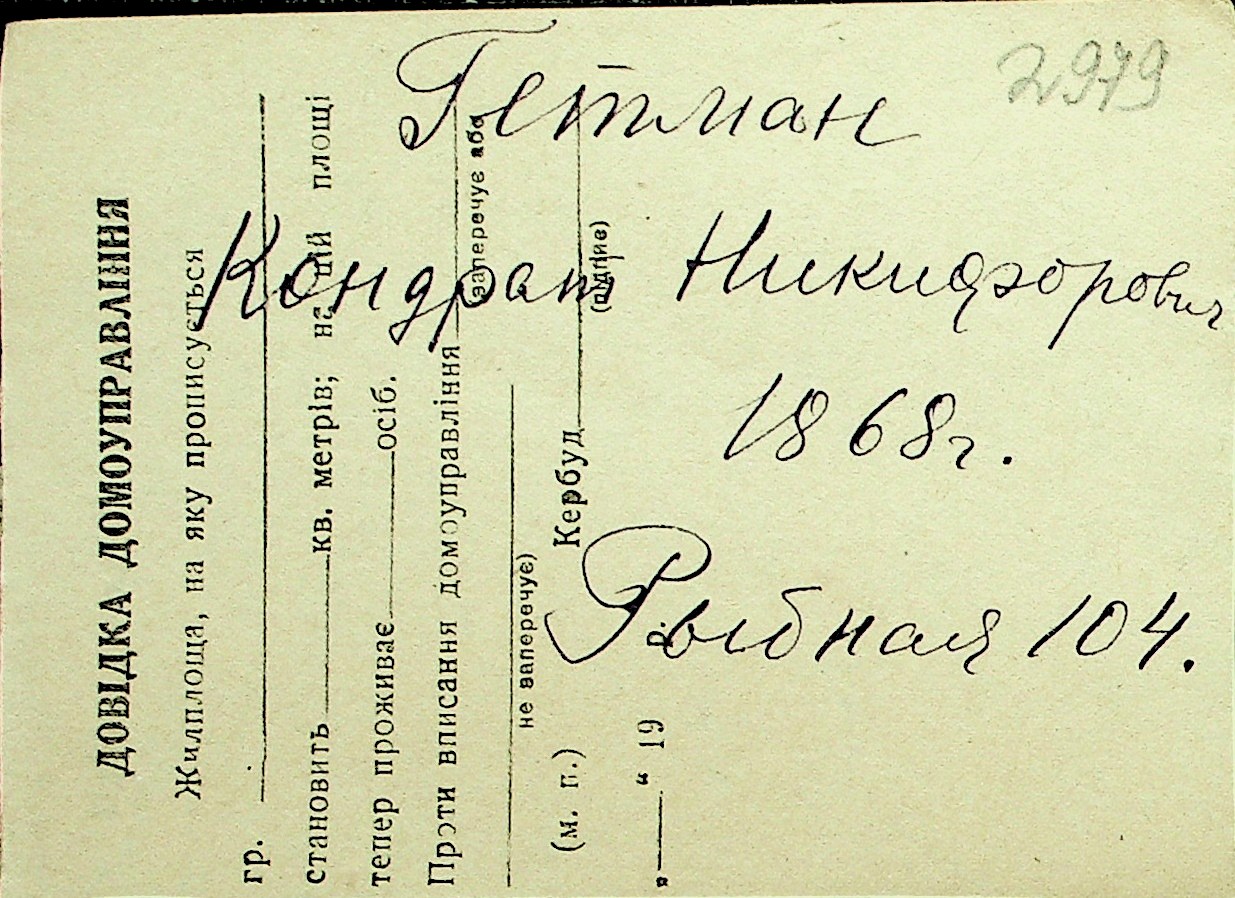 2979
Гетман
Кондрат Никифорович
1868г.
Рыбная 104.
ДОВІДКА ДОМОУПРАВЛІННЯ
Жилплоща, на яку прописується
гр.
становить кв. метрів; на цій площі
тепер проживає осіб.
Проти вписання домоуправління
(заперечує або
не заперечує)
(м. п.) Кербуд
(підпис)
„ “ 19 р.